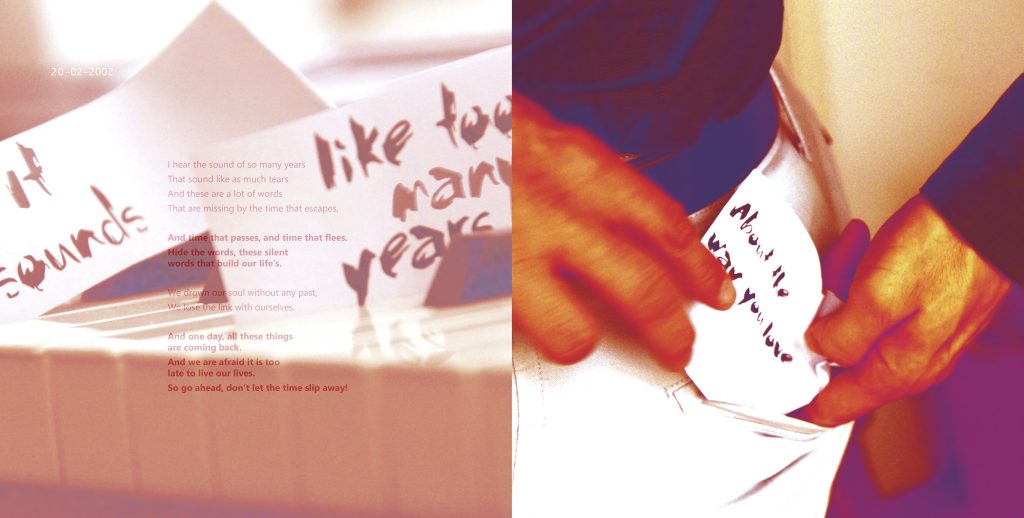 20–02–2002
It
sounds
like too
many
years
I hear the sound of so many years
That sound like as much tears
And these are a lot of words
That are missing by the time that escapes,
And time that passes, and time that flees.
Hide the words, these silent
words that build our life's.
We drown our soul without any past,
We lose the link with ourselves.
And one day, all these things
are coming back.
And we are afraid it is too
late to live our lives.
So go ahead, don't let the time slip away!
About the
way you love